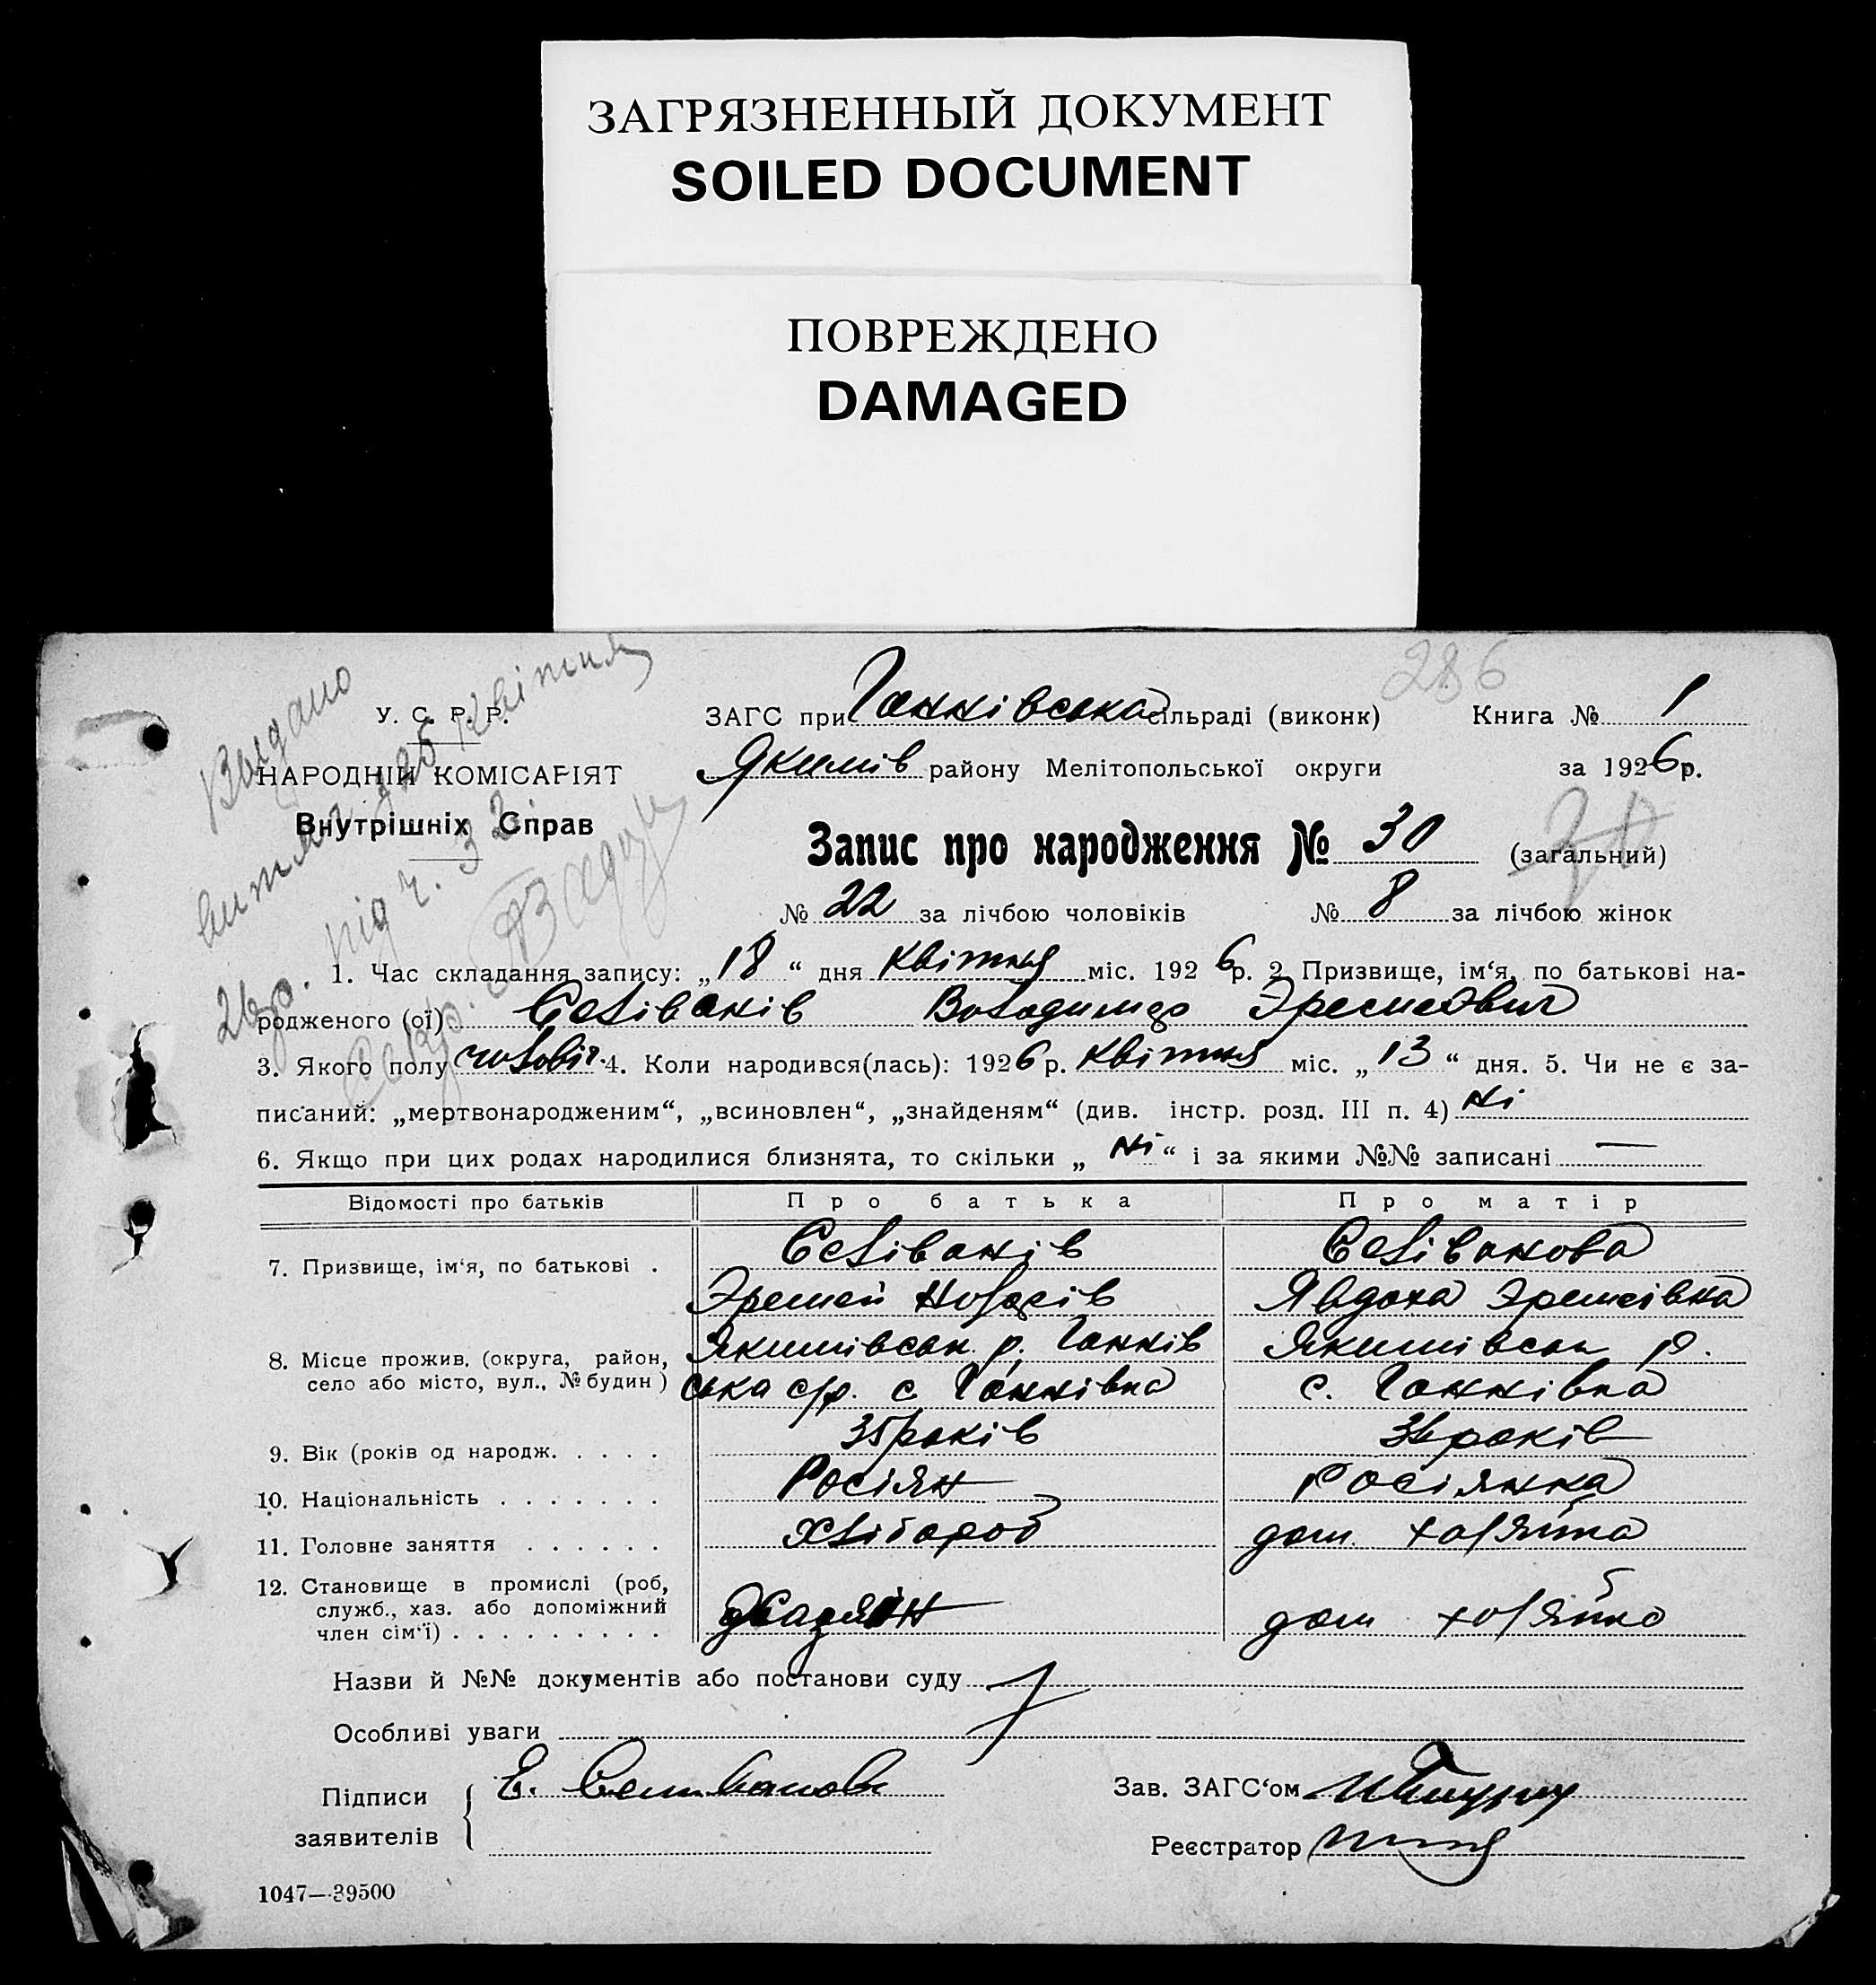 ЗАГРЯЗНЕННЫЙ ДОКУМЕНТ
SOILED DOCUMENT
ПОВРЕЖДЕНО
DAMAGED
286
У. С. Р. Р.
НАРОДНІЙ КОМІСАРІЯТ
Внутрішніх Справ
Выдано
витяг 25 квітня
26 р. під ч. 32
ЗАГС при Ганнівська сільраді (виконк) Книга № 1
Якимів району Мелітопольської округи за 1926 р.
Запис про народження № 30 (загальний)
№ 22 за лічбою чоловіків № 8 за лічбою жінок
1. Час складання запису: „18“ дня квітня міс. 1926 р. 2 Призвище, ім‘я, по батькові на-
родженого (ої) Селіванів Володимер
3. Якого полу чоловіч. 4. Коли народився(лась): 1926 р. квітня міс. „13“ дня. 5. Чи не є за-
писаний: „мертвонародженим“, „всиновлен“, „знайденям“ (див. інстр. розд. III п. 4) ні
6. Якщо при цих родах народилися близнята, то скільки „ні“ і за якими №№ записані —
Відомості про батьків Про батька Про матір
7. Призвище, ім‘я, по батькові . Селіванів Селіванова
Явдоха
8. Місце прожив. (округа, район, Якимівськ р. Ганнів Якимівськ р.
село або місто, вул., № будин) ська с/р. с. Ганнівка с. Ганнівка
9. Вік (років од народж. . . . . 35 років років
10. Національність . . . . . . . Росіян Росіянка
11. Головне заняття . . . . . . Хлібороб дом. хозяйка
12. Становище в промислі (роб,
служб., хаз. або допоміжний
член сім‘ї) . . . . . . . . . дом хозяйка
Назви й №№ документів або постанови суду
Особливі уваги
Підписи Е. Селиванов Зав. ЗАГС‘ом
заявителів Реєстратор
1047—39500